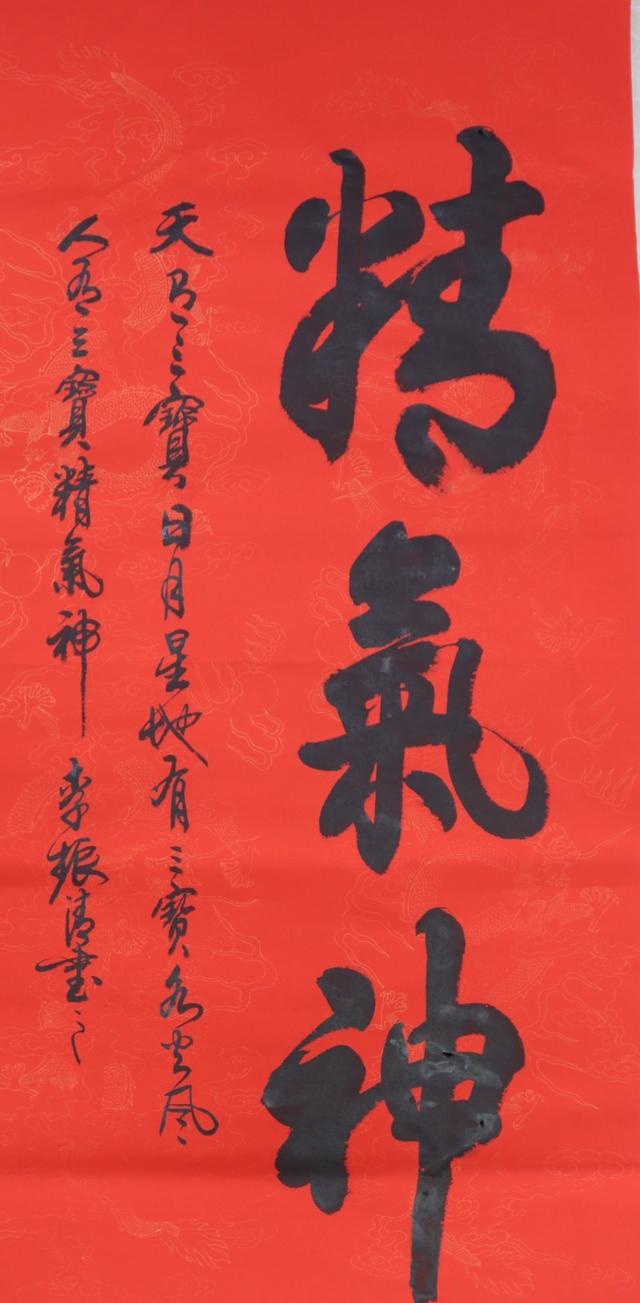 精氣神
天有三寶日月星地有三寶水火風
人有三寶精氣神 李振清書之